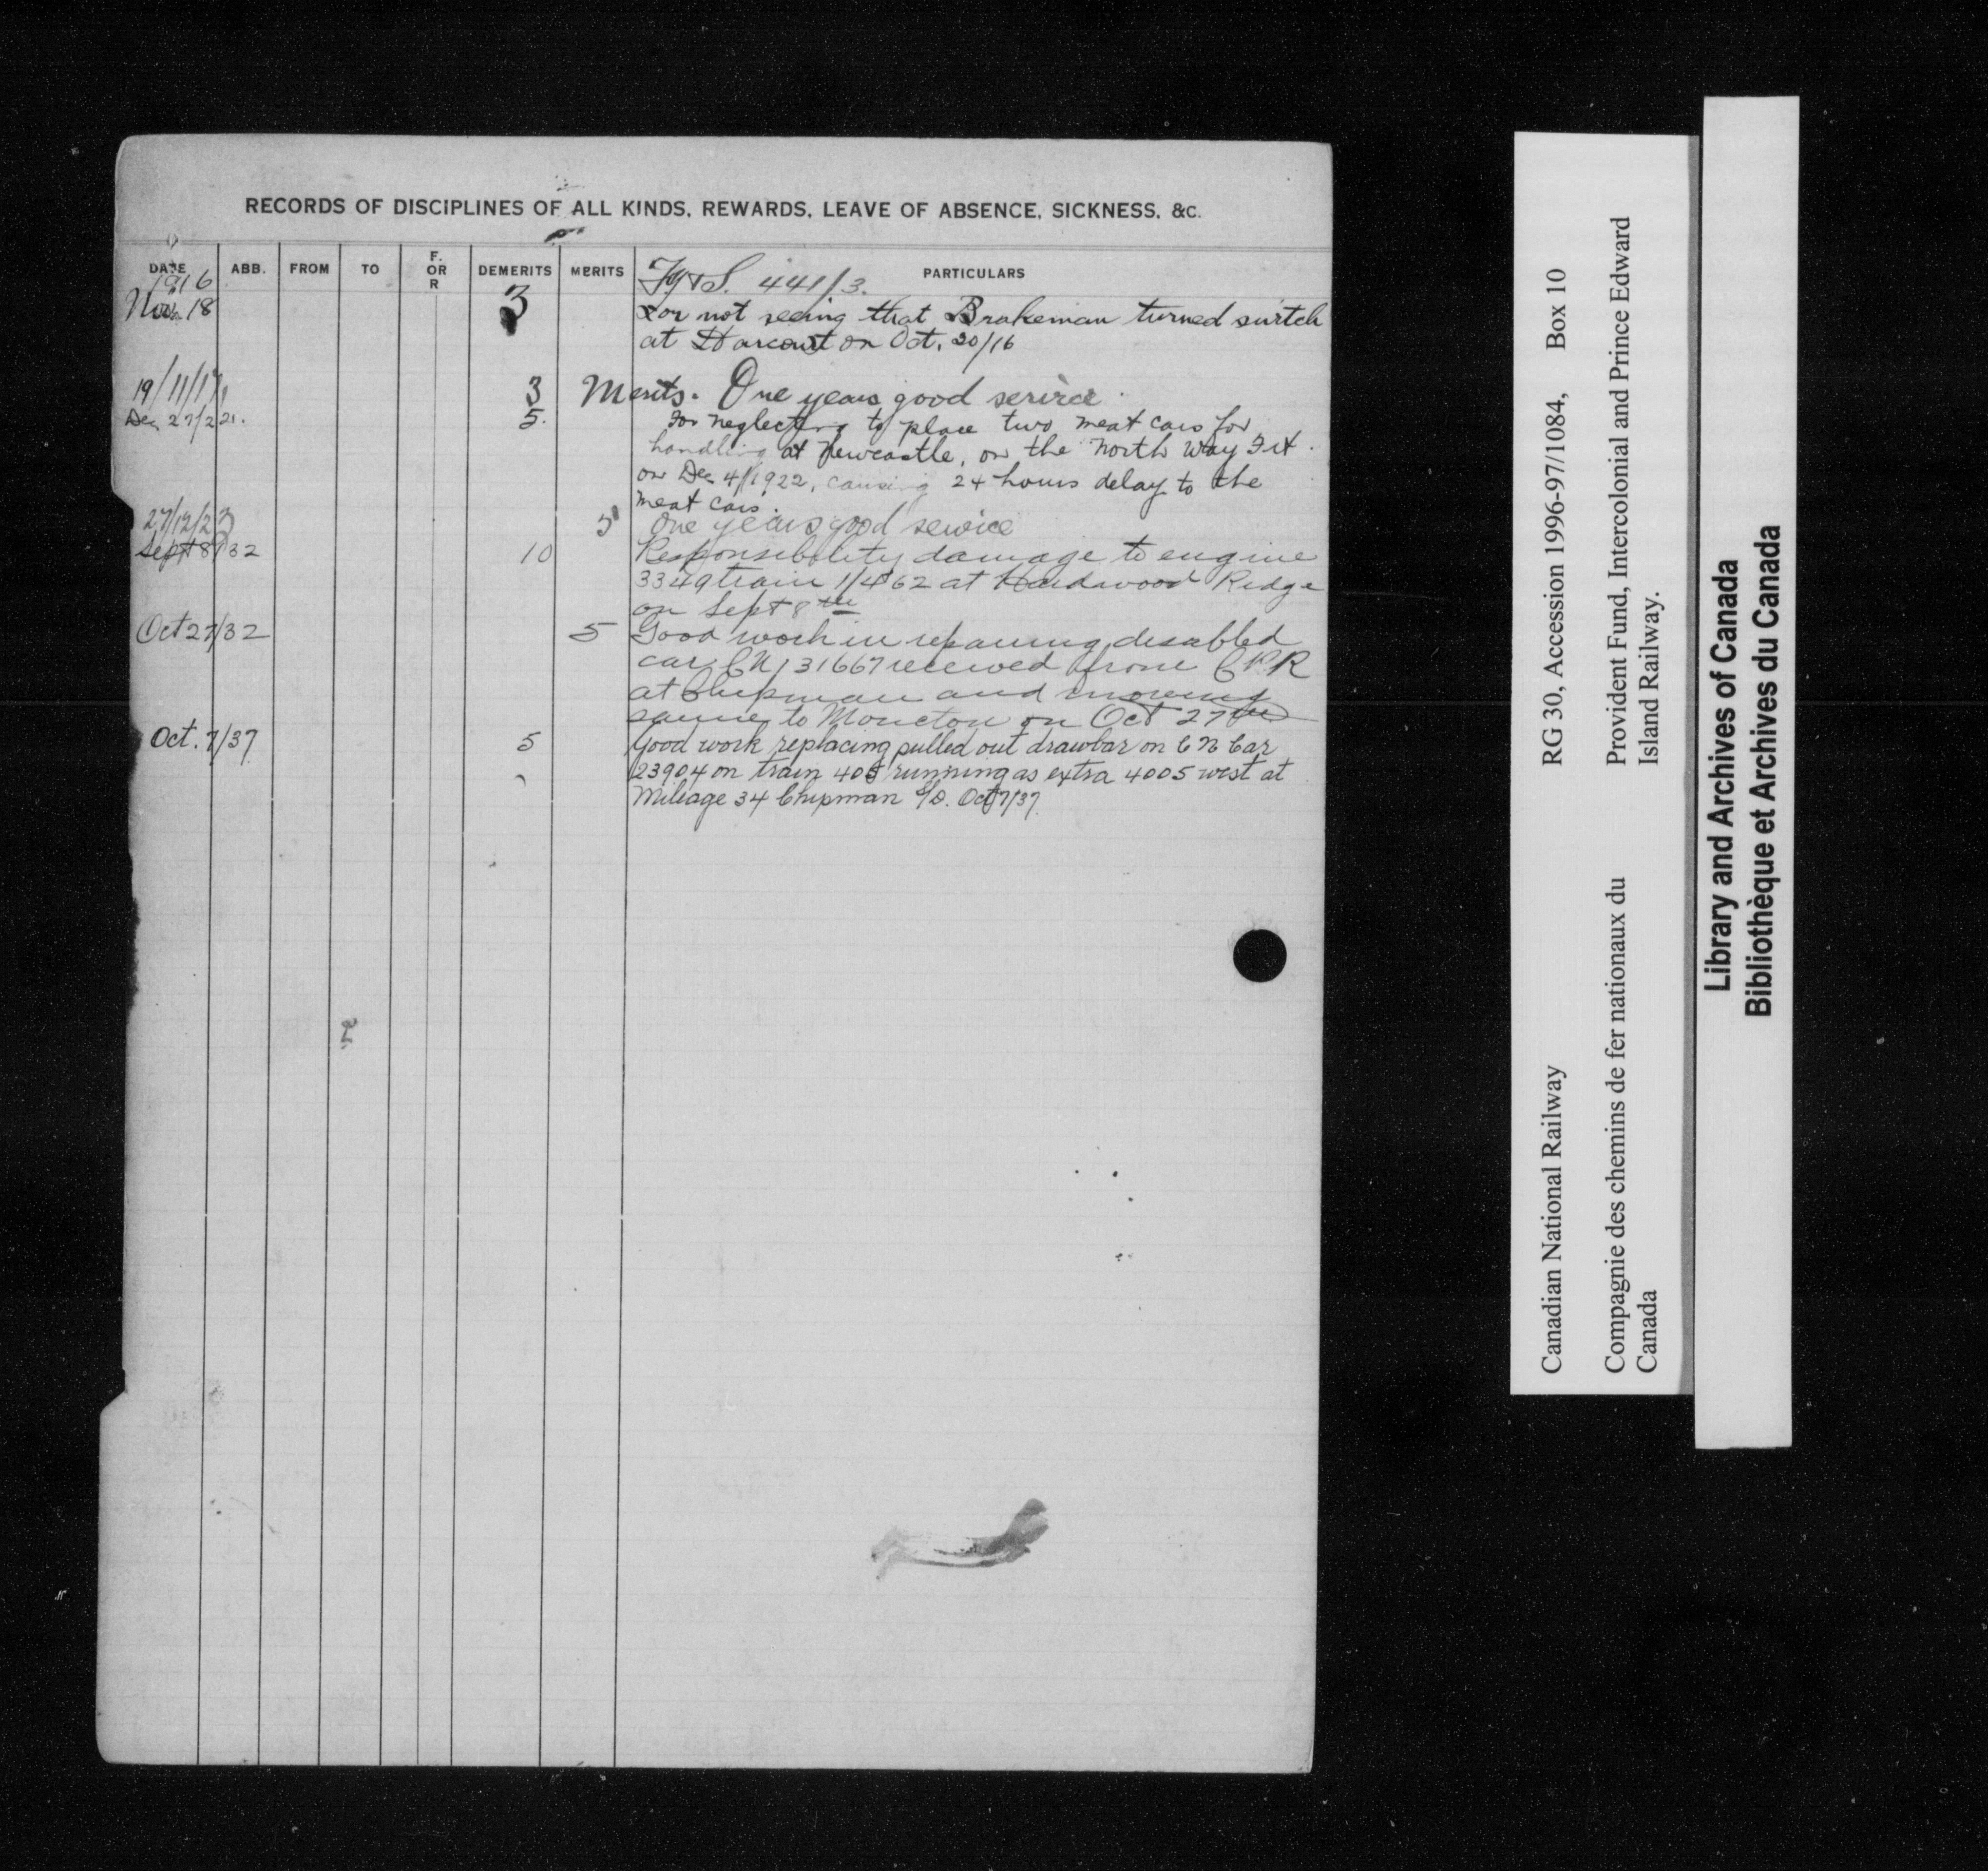 RECORDS OF DISCIPLINES OF ALL KINDS, REWARDS, LEAVE OF ABSENCE, SICKNESS, &c.
DATE ABB. FROM TO F. OR R DEMERITS MERITS PARTICULARS
1916 441/3.
Nov. 18 3 For not seeing that Brakeman turned switch
at Harcourt on Oct. 20/16
19/11/17, 3 Merits. One years good service
Dec 27/221. 5. For neglecting to place two meat cars for
handling at Newcastle, on the North Way Frt.
on Dec 4/1922, causing 24 hours delay to the
meat cars.
27/12/23 5 One years good service
Sept 8/32 10 Responsibility damage to engine
3349 train 1/462 at Hardwood Ridge
on Sept 8th
Oct 27/32 5 Good work in repairing disabled
car CN 131667 received from CPR
at Chipman and moving
same to Moncton on Oct 27th
Oct. 7/37 5 Good work replacing pulled out drawbar on C N Car
23904 on train 405 running as extra 4005 west at
Mileage 34 Chipman S/D. Oct 7/37.
Canadian National Railway RG 30, Accession 1996-97/1084, Box 10
Compagnie des chemins de fer nationaux du Provident Fund, Intercolonial and Prince Edward
Canada Island Railway.
Library and Archives of Canada
Bibliothèque et Archives du Canada